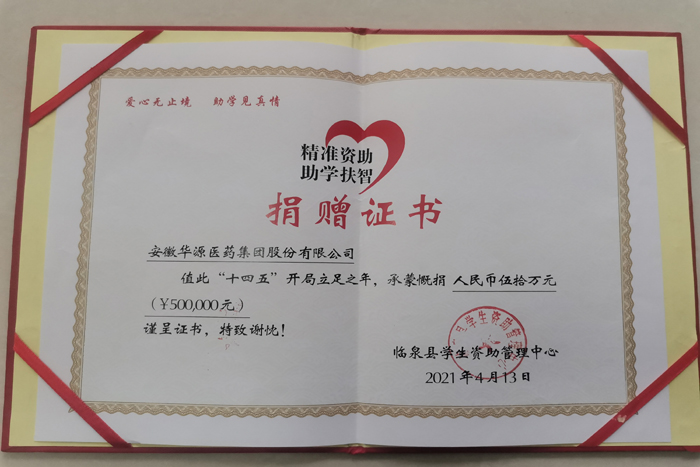 爱心无止境 助学见真情
精准资助
助学扶智
捐赠证书
安徽华源医药集团股份有限公司
值此“十四五”开局立足之年，承蒙慨捐 人民币伍拾万元
（￥500,000元）
谨呈证书，特致谢忱！
学生资助管理
临泉县学生资助管理中心
2021年4月13日